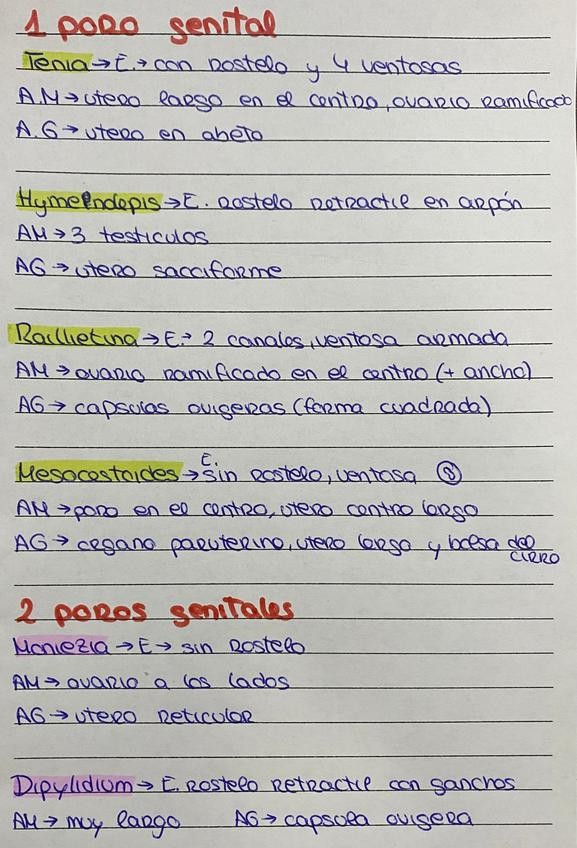 1 poro genital
Tenia → E. → con rostelo y 4 ventosas
A.M → utero largo en el centro, ovario ramificado
A.G → utero en abeto
Hymelndepis → E. rostelo retractil en arpón
AM → 3 testiculos
AG → utero sacciforme
Raillietina → E. → 2 canales, ventosa armada
AM → ovario ramificado en el centro (+ ancho)
AG → capsulas ovigeras (forma cuadrada)
Mesocestoides → E. sin rostelo, ventosa 8
AM → poro en el centro, utero centro largo
AG → organo paruterino, utero largo y bolsa del cirro
2 poros genitales
Moniezia → E → sin rostelo
AM → ovario a los lados
AG → utero reticular
Dipylidium → E. rostelo retractil con ganchos
AM → muy largo AG → capsula ovigera